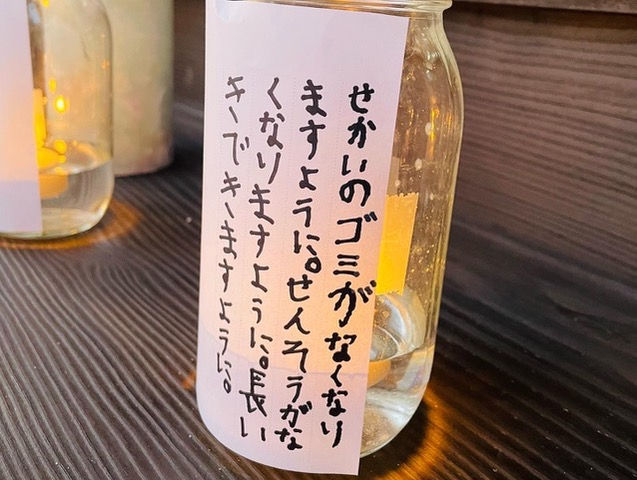 せかいのゴミがなくなり
ますように。せんそうがな
くなりますように。長い
きできますように。